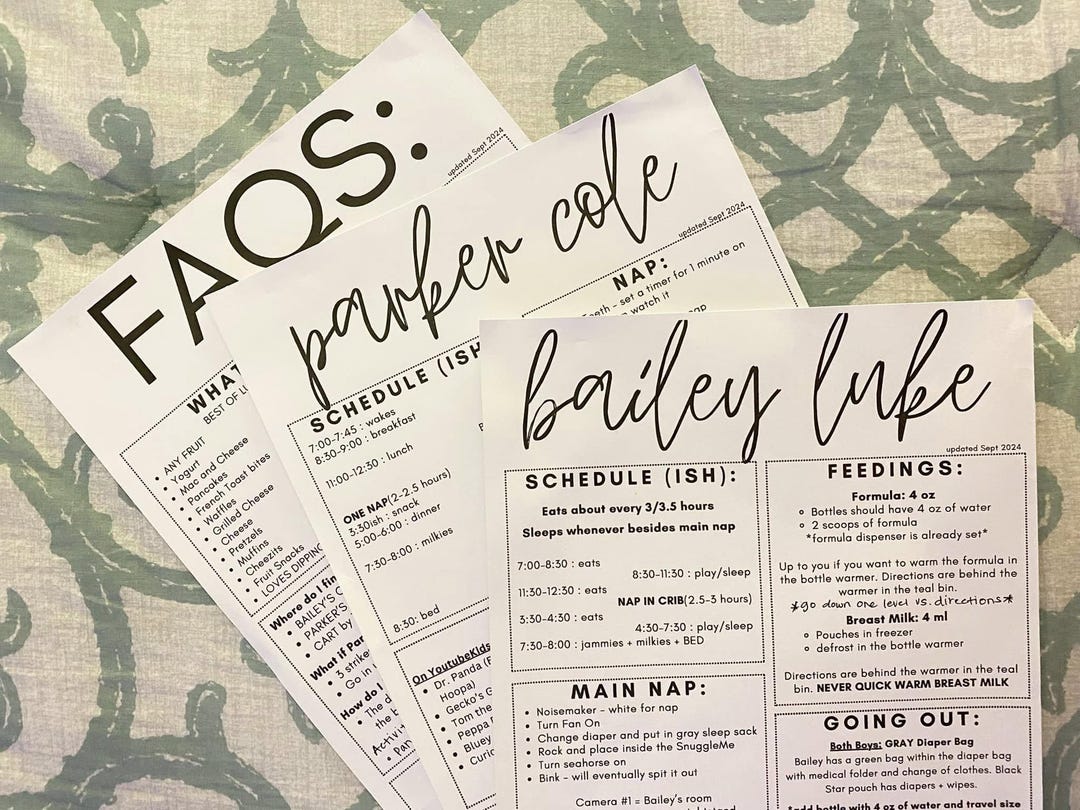 FAQS:
updated Sept 2024
WHAT
BEST OF
ANY FRUIT
Yogurt
Mac and Cheese
Pancakes
French Toast bites
Waffles
Grilled Cheese
Cheese
Pretzels
Muffins
Cheezits
Fruit Snacks
LOVES DIPPING
Where do I fin
BAILEY'S
PARKER'S
CART by
What if Par
3 strike
Go in
How do
The d
the b
Activi
Par
parker cole
updated Sept 2024
SCHEDULE (ISH
7:00-7:45 : wakes
8:30-9:00 : breakfast
11:00-12:30 : lunch
ONE NAP(2-2.5 hours)
3:30ish : snack
5:00-6:00 : dinner
7:30-8:00 : milkies
8:30: bed
On YoutubeKids
Dr. Panda (
Hoopa)
Gecko's G
Tom the
Peppa
Bluey
Curio
NAP:
eeth - set a timer for 1 minute on
watch it
nap
bailey luke
updated Sept 2024
SCHEDULE (ISH):
Eats about every 3/3.5 hours
Sleeps whenever besides main nap
7:00-8:30 : eats
8:30-11:30 : play/sleep
11:30-12:30 : eats
NAP IN CRIB(2.5-3 hours)
3:30-4:30 : eats
4:30-7:30 : play/sleep
7:30-8:00 : jammies + milkies + BED
MAIN NAP:
Noisemaker - white for nap
Turn Fan On
Change diaper and put in gray sleep sack
Rock and place inside the SnuggleMe
Turn seahorse on
Bink - will eventually spit it out
Camera #1 = Bailey's room
FEEDINGS:
Formula: 4 oz
Bottles should have 4 oz of water
2 scoops of formula
*formula dispenser is already set*
Up to you if you want to warm the formula in
the bottle warmer. Directions are behind the
warmer in the teal bin.
*go down one level vs. directions*
Breast Milk: 4 ml
Pouches in freezer
defrost in the bottle warmer
Directions are behind the warmer in the teal
bin. NEVER QUICK WARM BREAST MILK
GOING OUT:
Both Boys: GRAY Diaper Bag
Bailey has a green bag within the diaper bag
with medical folder and change of clothes. Black
Star pouch has diapers + wipes.
*add bottle with 4 oz of water and travel size